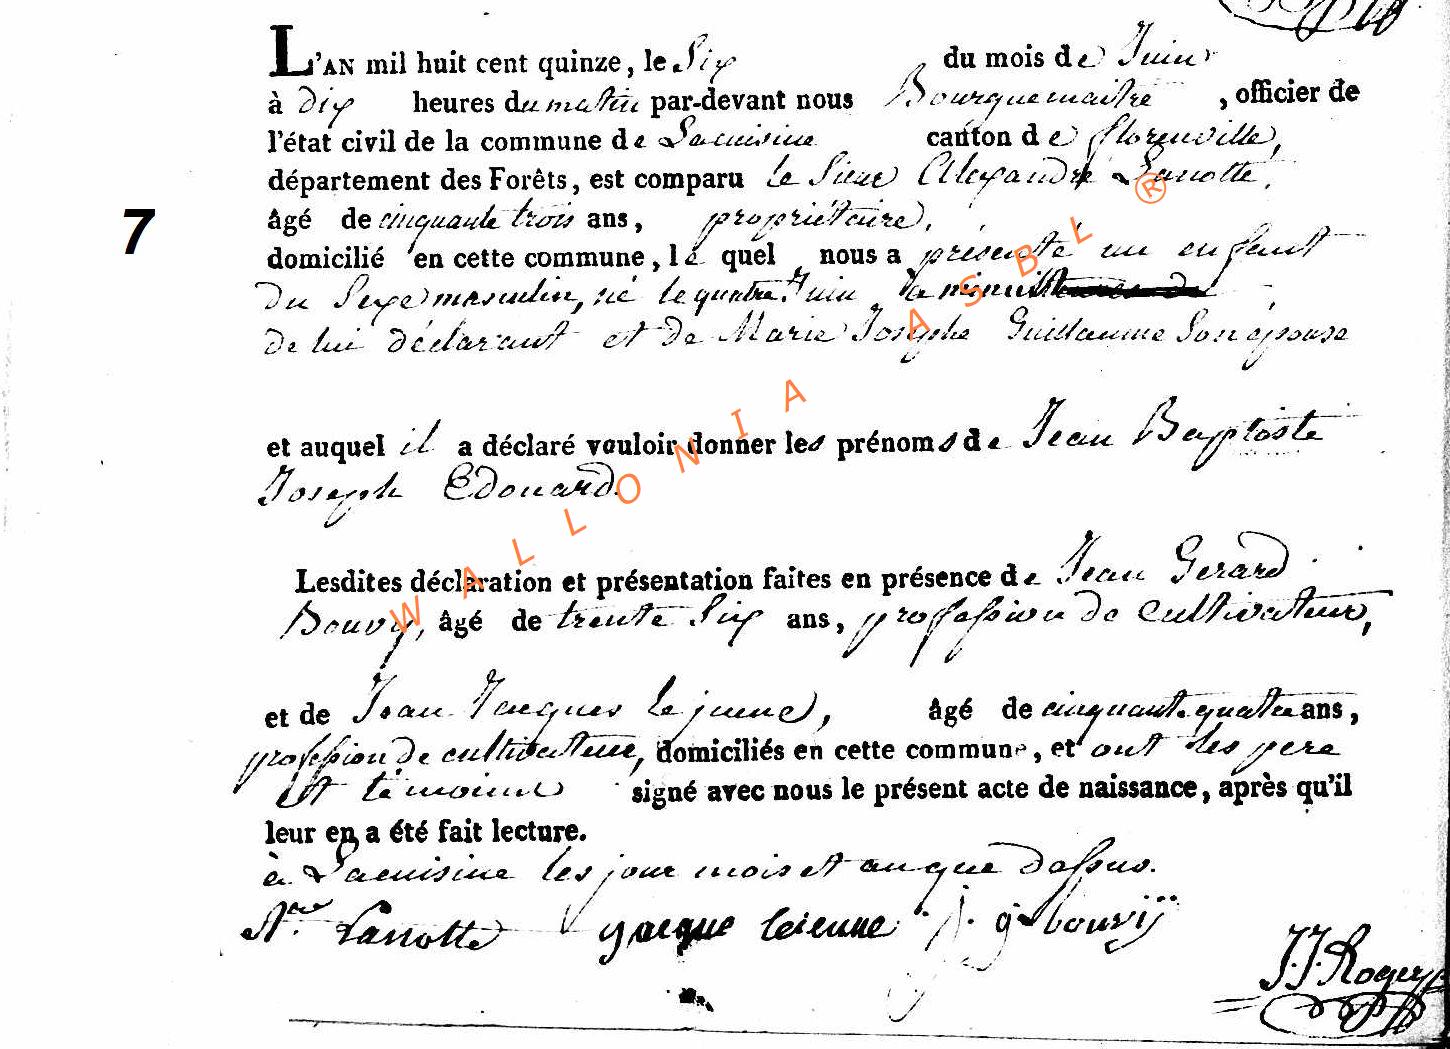 L'AN mil huit cent quinze, le Six du mois de Juin
à dix heures du matin par-devant nous Bourguemaitre, officier de
l'état civil de la commune de Lacuisine canton de florenville,
département des Forêts, est comparu le Sieur Alexandre Lanotte,
7
âgé de cinquante trois ans, propriétaire,
domicilié en cette commune, le quel nous a présenté un enfant
du Sexe masculin, né le quatre Juin a minuit
de lui déclarant et de Marie Josephe Guillaume Son épouse
et auquel il a déclaré vouloir donner les prénoms de Jean Baptiste
Joseph Edouard.
Lesdites déclaration et présentation faites en présence de Jean Gerard
Bouvy, âgé de trente Six ans, profession de cultivateur,
et de Jean Jacques Lejeune, âgé de cinquante quatre ans,
profession de cultivateur, domiciliés en cette commune, et ont les pere
et témoins signé avec nous le présent acte de naissance, après qu'il
leur en a été fait lecture.
à Lacuisine les jour mois et an que dessus.
Lanotte Jacque leieune j. g bouvij
J.J. Roger
WALLONIA ASBL ®